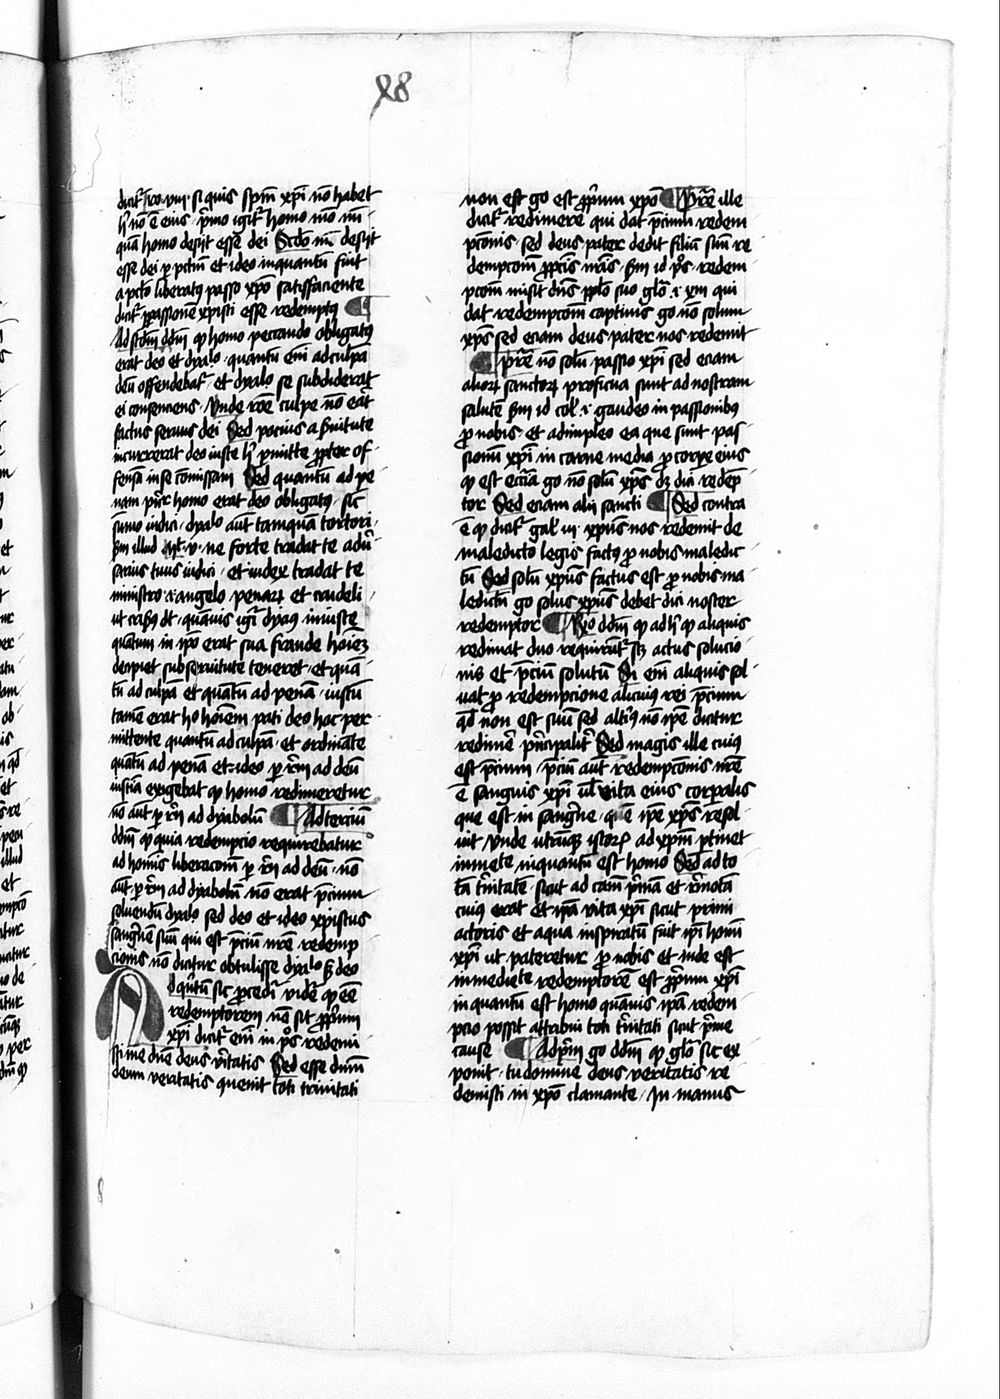 98
dicit͛ ro· viij· si quis spm̄ xp̄i nō habet
h̓ nō ē eius · p̄mo igit͛ homo
quā homo desijt esse dei Scdo desijt
esse dei p pctm̄ et ideo inquantū fuit
a pctō liberatꝯ passo xpō satisfaciente
dicit͛ ꝑpassionem xpisti esse redemptꝯ
Ad scdm̄ ddm̄ ꝙ homo peccando obligatꝯ
erat deo et dyalo · quantū em̄ ad culpā
deū offendebat͛ · et dyalo se subdiderat
ei consenciens · vnde rōe culpe nō erat
factus seruus dei Sed pocius a ẜuitute
incurrerat deo iuste h̓ ꝑmitte ꝓpter of
fensā in se cōmissam Sed quantū ad pe
nam homo erat deo obligatꝯ · sic̄
sūmo iudici · dyalo aut tamquā tortori ·
ẜm illud Mt· v· ne forte tradat te adū
sarius tuus iudici · et iudex tradat te
ministro ·i· angelo penarꝝ et crudeli
ut crisꝯ dt · quāuis igi͛ dyaꝯ iniuste
quātum in ip̄o erat sua fraude hoīeꝫ
deceptꝫ sub seruitute teneret · et quā
tū ad culpā et quātū ad penā · iustū
tamē erat ho hoīem pati deo hoc per
mittente quantū ad culpā · et ordināte
quātū ad penā et ideo p r̄m ad deū
iustiā exigebat ꝙ homo redimeretur
nō aut p r̄m ad dyabolū Ad tercium
ddm̄ ꝙ quia redempcio requirebatur
ad homīs liberacōm p r̄m ad deū · nō
aut· p r̄m ad dyabolū nō erat p̄cium
soluendū dyalo sed deo et ideo xpistus
sang̅ne͛ suū qui est p̄ciū nr̄e redemp
cionis nō dicitur obtulisse dyalo ß deo
Ad q̅ntū sic p̄cedi͛ vide͛ ꝙ eē
redemptorem nō sit ꝓp̄um
xp̄i dicit͛ em̄ in ps̄ redemi
sti me dn̄e deus v̄itatis Sed esse dn̄m
deum veritatis quenit toti trinitati
non est go est ꝓp̄um xpō P̄re͛ ille
dicit͛ redimere qui dat p̄cium redem
pcōnis sed deus pater dedit filiū suū re
dempcōm ꝓ pctis nr̄is ẜm id ps̄ · redem
pcōm misit dn̄s ppl̄o suo glō ·i· xm̄ qui
dat redempcōm captiuis go nō solum
xpūs sed eciam deus pater nos redemit
P̄re͛ nō solū passo xp̄i sed eciam
alioꝝ sanctoꝝ proficua sunt ad nostram
salutē ẜm id col̄ · i· gaudeo in passionibꝯ
ꝓ nobis et adimpleo ea que sunt pas
sionū xp̄i in carne mea ꝓ corpe eius
ꝙ est ecc̄ia go nō solū xpūs dꝫ dici redēp
tor Sed eciam alij sancti Sed contra
ē ꝙ dicit͛ gal̄ iij· xpūs nos redemit de
maledicto legis factꝯ ꝓ nobis maledic
tū Sed solū xpūs factus est ꝓ nobis ma
ledictū go solus xpūs debet dici noster
redemptor Rn̄o ddm̄ ꝙ ad h̓ ꝙ aliquis
redimat duo requirūt͛ sꝫ actus solucio
nis et p̄cium solutū Si em̄ aliquis sol
uat ꝓ redempcione alicuiꝯ rei p̄cium
qd̄ non est suū sed altiꝯ nō ip̄e dicitur
redime͛ p̄ncipalit͛ Sed magis ille cuiꝯ
est p̄cium · p̄ciū aut redempcōnis nr̄e
ē sanguis xp̄i ul̄ vita eius corpalis
que est in sang̅ne · ip̄e xpūs resol
uit vnde utrūqꝫ istoꝝ ad xpm̄ ptinet
inmete inquantū est homo Sed ad to
tā t̄nitatē sicut ad cām p̄mā et remotā
cuiꝯ erat et ip̄a vita xp̄i sicut primi
actoris et a qua inspiratū fuit ip̄i homī
xp̄i ut pateretur ꝓ nobis et inde est
inmediate redemptorē est ꝓp̄um xp̄i
in quantū est homo quāuis ip̄a redem
pcio possit attribui toti t̄nitati sicut p̄me
cause Ad p̄m go ddm̄ ꝙ glō sic ex
ponit · tu domine deus veritatis re
demisti in xpō clamante · In manus